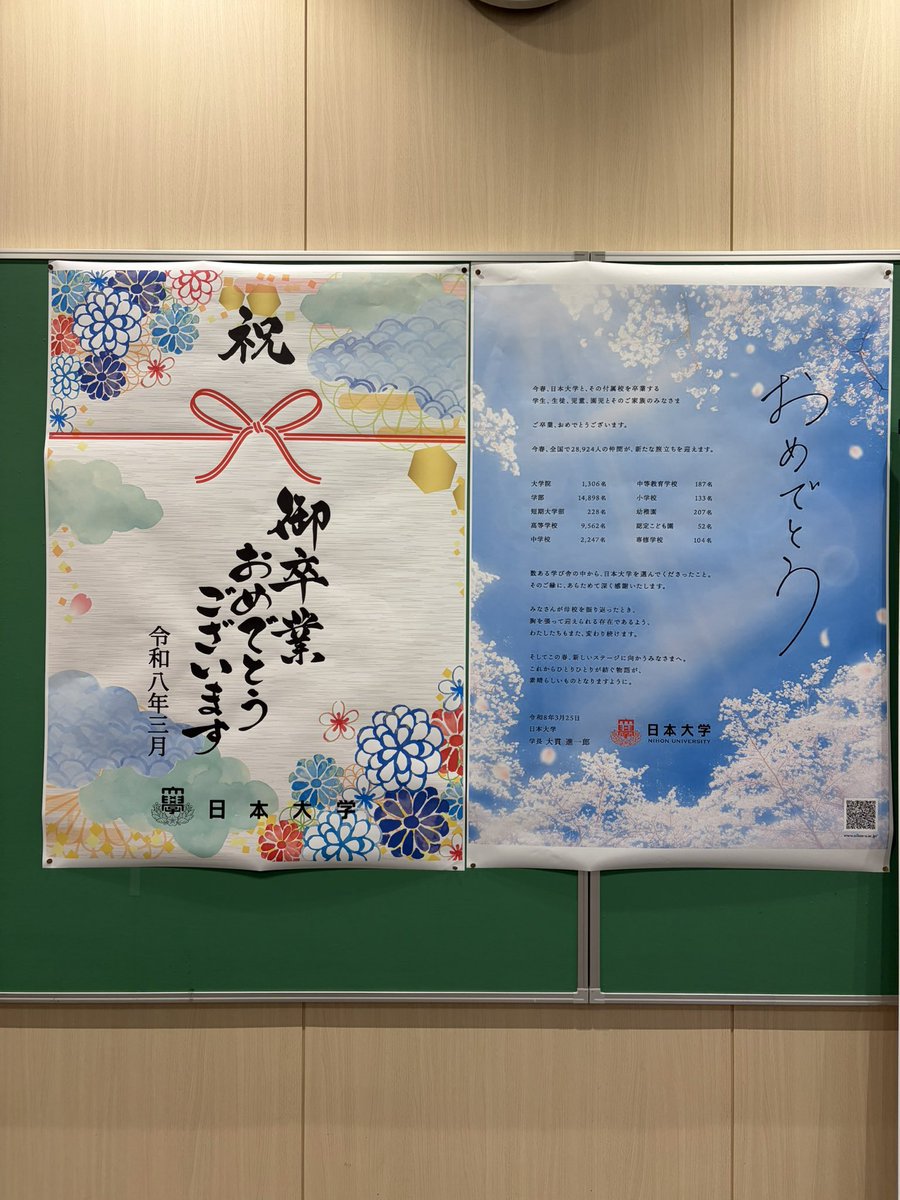 祝
御卒業
おめでとう
ございます
令和八年三月
日本大学
おめでとう
今春、日本大学と、その付属校を卒業する
学生、生徒、児童、園児とそのご家族のみなさま
ご卒業、おめでとうございます。
今春、全国で28,924人の仲間が、新たな旅立ちを迎えます。
大学院 1,306名 中等教育学校 187名
学部 14,898名 小学校 133名
短期大学部 228名 幼稚園 207名
高等学校 9,562名 認定こども園 52名
中学校 2,247名 専修学校 104名
数ある学び舎の中から、日本大学を選んでくださったこと。
そのご縁に、あらためて深く感謝いたします。
みなさんが母校を振り返ったとき、
胸を張って迎えられる存在であるよう、
わたしたちもまた、変わり続けます。
そしてこの春、新しいステージに向かうみなさまへ。
これからひとりひとりが紡ぐ物語が、
素晴らしいものとなりますように。
令和8年3月25日
日本大学
学長 大貫 進一郎
日本大学
NIHON UNIVERSITY
www.nihon-u.ac.jp